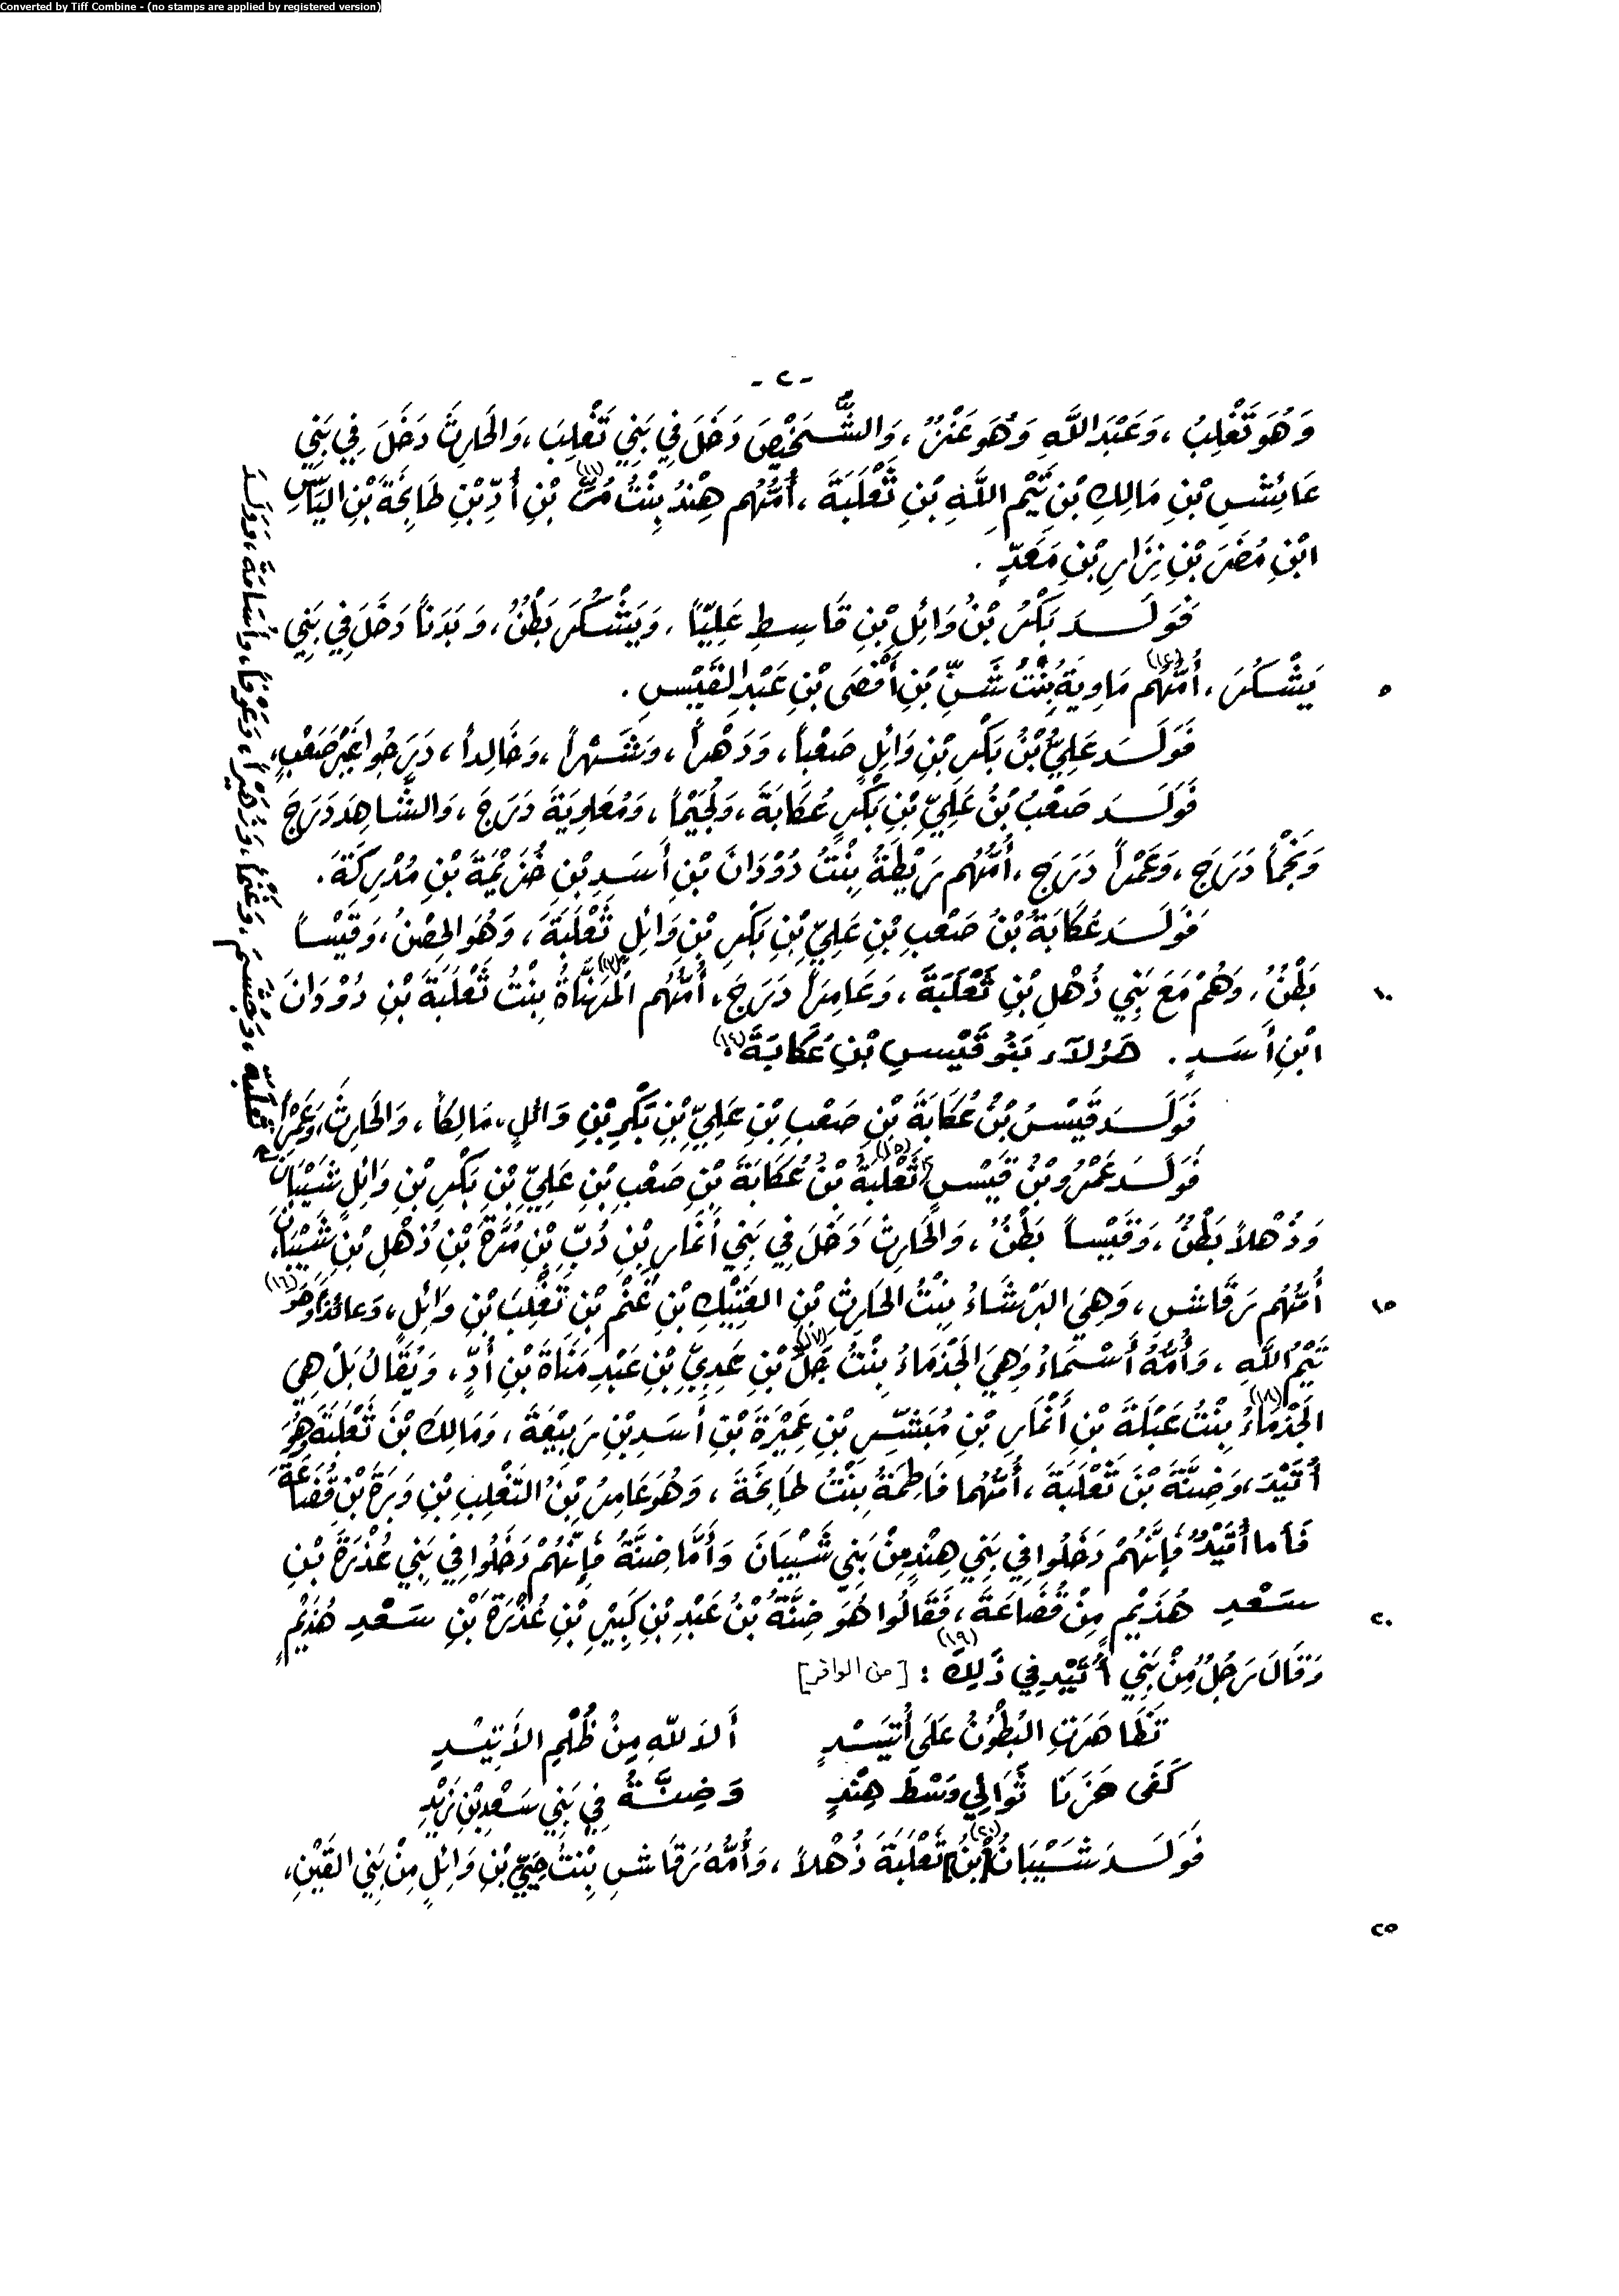 Converted by Tiff Combine - (no stamps are applied by registered version)
- ٢ -
وَهُوَ تَغْلِبُ ، وَعَبْدَ اللَّهِ وَهُوَ عَنْزُ ، وَالشُّخَيْصَ دَخَلَ فِي بَنِي تَغْلِبَ ، وَالحَارِثَ دَخَلَ فِي بَنِي
عَائِشِ بْنِ مَالِكِ بْنِ تَيْمِ اللَّهِ بْنِ ثَعْلَبَةَ ، أُمُّهُم هِنْدُ بِنْتُ مُرِّ (١١) بْنِ أُدِّ بْنِ طَابِخَةَ بْنِ اليَاسِ
ابْنِ مُضَرَ بْنِ نِزَارِ بْنِ مَعَدٍّ .
فَوَلَدَ بَكْرُ بْنُ وَائِلِ بْنِ قَاسِطِ عَلِيّاً ، وَيَشْكُرَ بَطْنُ ، وَبَدَناً دَخَلَ فِي بَنِي
يَشْكُرَ ، أُمُّهُم (١٢) مَاوِيَةُ بِنْتُ شَنِّ بْنِ أَفْصَى بْنِ عَبْدِ القَيْسِ .
٥
فَوَلَدَ عَلِيُّ بْنُ بَكْرِ بْنِ وَائِلٍ صَعْباً ، وَدَهْراً ، وَشَهْراً ، وَخَالِداً ، دَرَجُوا غَيْرَ صَعْبٍ ،
فَوَلَدَ صَعْبُ بْنُ عَلِيِّ بْنِ بَكْرٍ عُكَابَةَ ، وَلُجَيْماً ، وَمُعَاوِيَةَ دَرَجَ ، وَالشَّاهِدَ دَرَجَ
وَنَجْماً دَرَجَ ، وَعَمْراً دَرَجَ ، أُمُّهُم رَيْطَةُ بِنْتُ دُوْدَانَ بْنِ أَسَدِ بْنِ خُزَيْمَةَ بْنِ مُدْرِكَةَ .
فَوَلَدَ عُكَابَةُ بْنُ صَعْبِ بْنِ عَلِيِّ بْنِ بَكْرِ بْنِ وَائِلٍ ثَعْلَبَةَ ، وَهُوَ الحِصْنُ ، وَقَيْساً
بَطْنُ ، وَهُمْ مَعَ بَنِي ذُهْلِ بْنِ ثَعْلَبَةَ ، وَعَامِرَاً دَرَجَ ، أُمُّهُم المَهَنَّاةُ (١٣) بِنْتُ ثَعْلَبَةَ بْنِ دُوْدَانَ
١٠
ابْنِ أَسَدٍ . هَؤُلَآءِ بَنُو قَيْسِ بْنِ عُكَابَةَ (١٤)
فَوَلَدَ قَيْسُ بْنُ عُكَابَةَ بْنِ صَعْبِ بْنِ عَلِيِّ بْنِ بَكْرِ بْنِ وَائِلٍ ، مَالِكاً ، وَالحَارِثَ ، وَعَمْراً ،
ثَعْلَبَةَ ، وَجُشَمَ ، وَغَنْماً ، وَزُهَيْراً ، وَعَوْفاً ، وَأُسَامَةَ ، وَوَلَدَ
فَوَلَدَ عَمْرُو بْنُ قَيْسٍ ثَعْلَبَةُ (١٥) بْنُ عُكَابَةَ بْنِ صَعْبِ بْنِ عَلِيِّ بْنِ بَكْرِ بْنِ وَائِلٍ شَيْبَانَ
وَذُهْلاً بَطْنُ ، وَقَيْساً بَطْنُ ، وَالحَارِثَ دَخَلَ فِي بَنِي أَنْمَارِ بْنِ دُبِّ بْنِ مُرَّةَ بْنِ ذُهْلِ بْنِ شَيْبَانَ ،
أُمُّهُم رَقَاشِ ، وَهِيَ البَرْشَاءُ بِنْتُ الحَارِثِ بْنِ العَتِيْكِ بْنِ غَنْمِ بْنِ تَغْلِبَ بْنِ وَائِلٍ ، وَعائذاً وَهُوَ (١٦)
١٥
تَيْمُ اللَّهِ ، وَأُمُّهُ أَسْمَاءُ وَهِيَ الجَذْمَاءُ بِنْتُ جَلِّ (١٧) بْنِ عَدِيِّ بْنِ عَبْدِ مَنَاةَ بْنِ أُدٍّ ، وَيُقَالُ بَلْ هِيَ
الجَذْمَاءُ (١٨) بِنْتُ عَبْلَةَ بْنِ أَنْمَارِ بْنِ مُبَشِّرِ بْنِ عَمِيْرَةَ بْنِ أَسَدِ بْنِ رَبِيْعَةَ ، وَمَالِكَ بْنَ ثَعْلَبَةَ وَهُوَ
أُتَيْدَ ، وَضِنَّةَ بْنَ ثَعْلَبَةَ ، أُمُّهُمَا فَاطِمَةُ بِنْتُ طَابِخَةَ ، وَهُوَ عَامِرُ بْنُ التَغْلِبِ بْنِ وَبَرَةَ بْنِ قُضَاعَةَ
فَأَما أُتَيْدُ فَإِنَّهُمْ دَخَلُوا فِي بَنِي هِنْدٍ مِنْ بَنِي شَيْبَانَ وَأَمَّا ضِنَّةُ فَإِنَّهُمْ دَخَلُوا فِي بَنِي عُذْرَةَ بْنِ
سَعْدِ هُذَيْمٍ مِنْ قُضَاعَةَ ، فَقَالُوا هُوَ ضِنَّةُ بْنُ عَبْدِ بْنِ كَبِيْرِ بْنِ عُذْرَةَ بْنِ سَعْدِ هُذَيْمٍ
٢٠
وَقَالَ رَجُلٌ مِنْ بَنِي أُتَيْدٍ فِي ذَلِكَ (١٩) : [من الوافر]
تَظَاهَرَتِ البُطُوْنُ عَلَى أُتَيْدٍ أَلاَ للّهِ مِنْ ظُلْمِ الأُتَيْدِ
كَفَى حَزَنَا ثَوَائِي وَسْطَ هِنْدٍ وَضِنَّةُ فِي بَنِي سَعْدِ بْنِ زَيْدِ
فَوَلَدَ شَيْبَانُ [بْنُ] (٢٠) ثَعْلَبَةَ ذُهْلاً ، وَأُمُّهُ رَقَاشِ بِنْتُ حُيَيِّ بْنِ وَائِلٍ مِنْ بَنِي القَيْنِ ،
٢٥